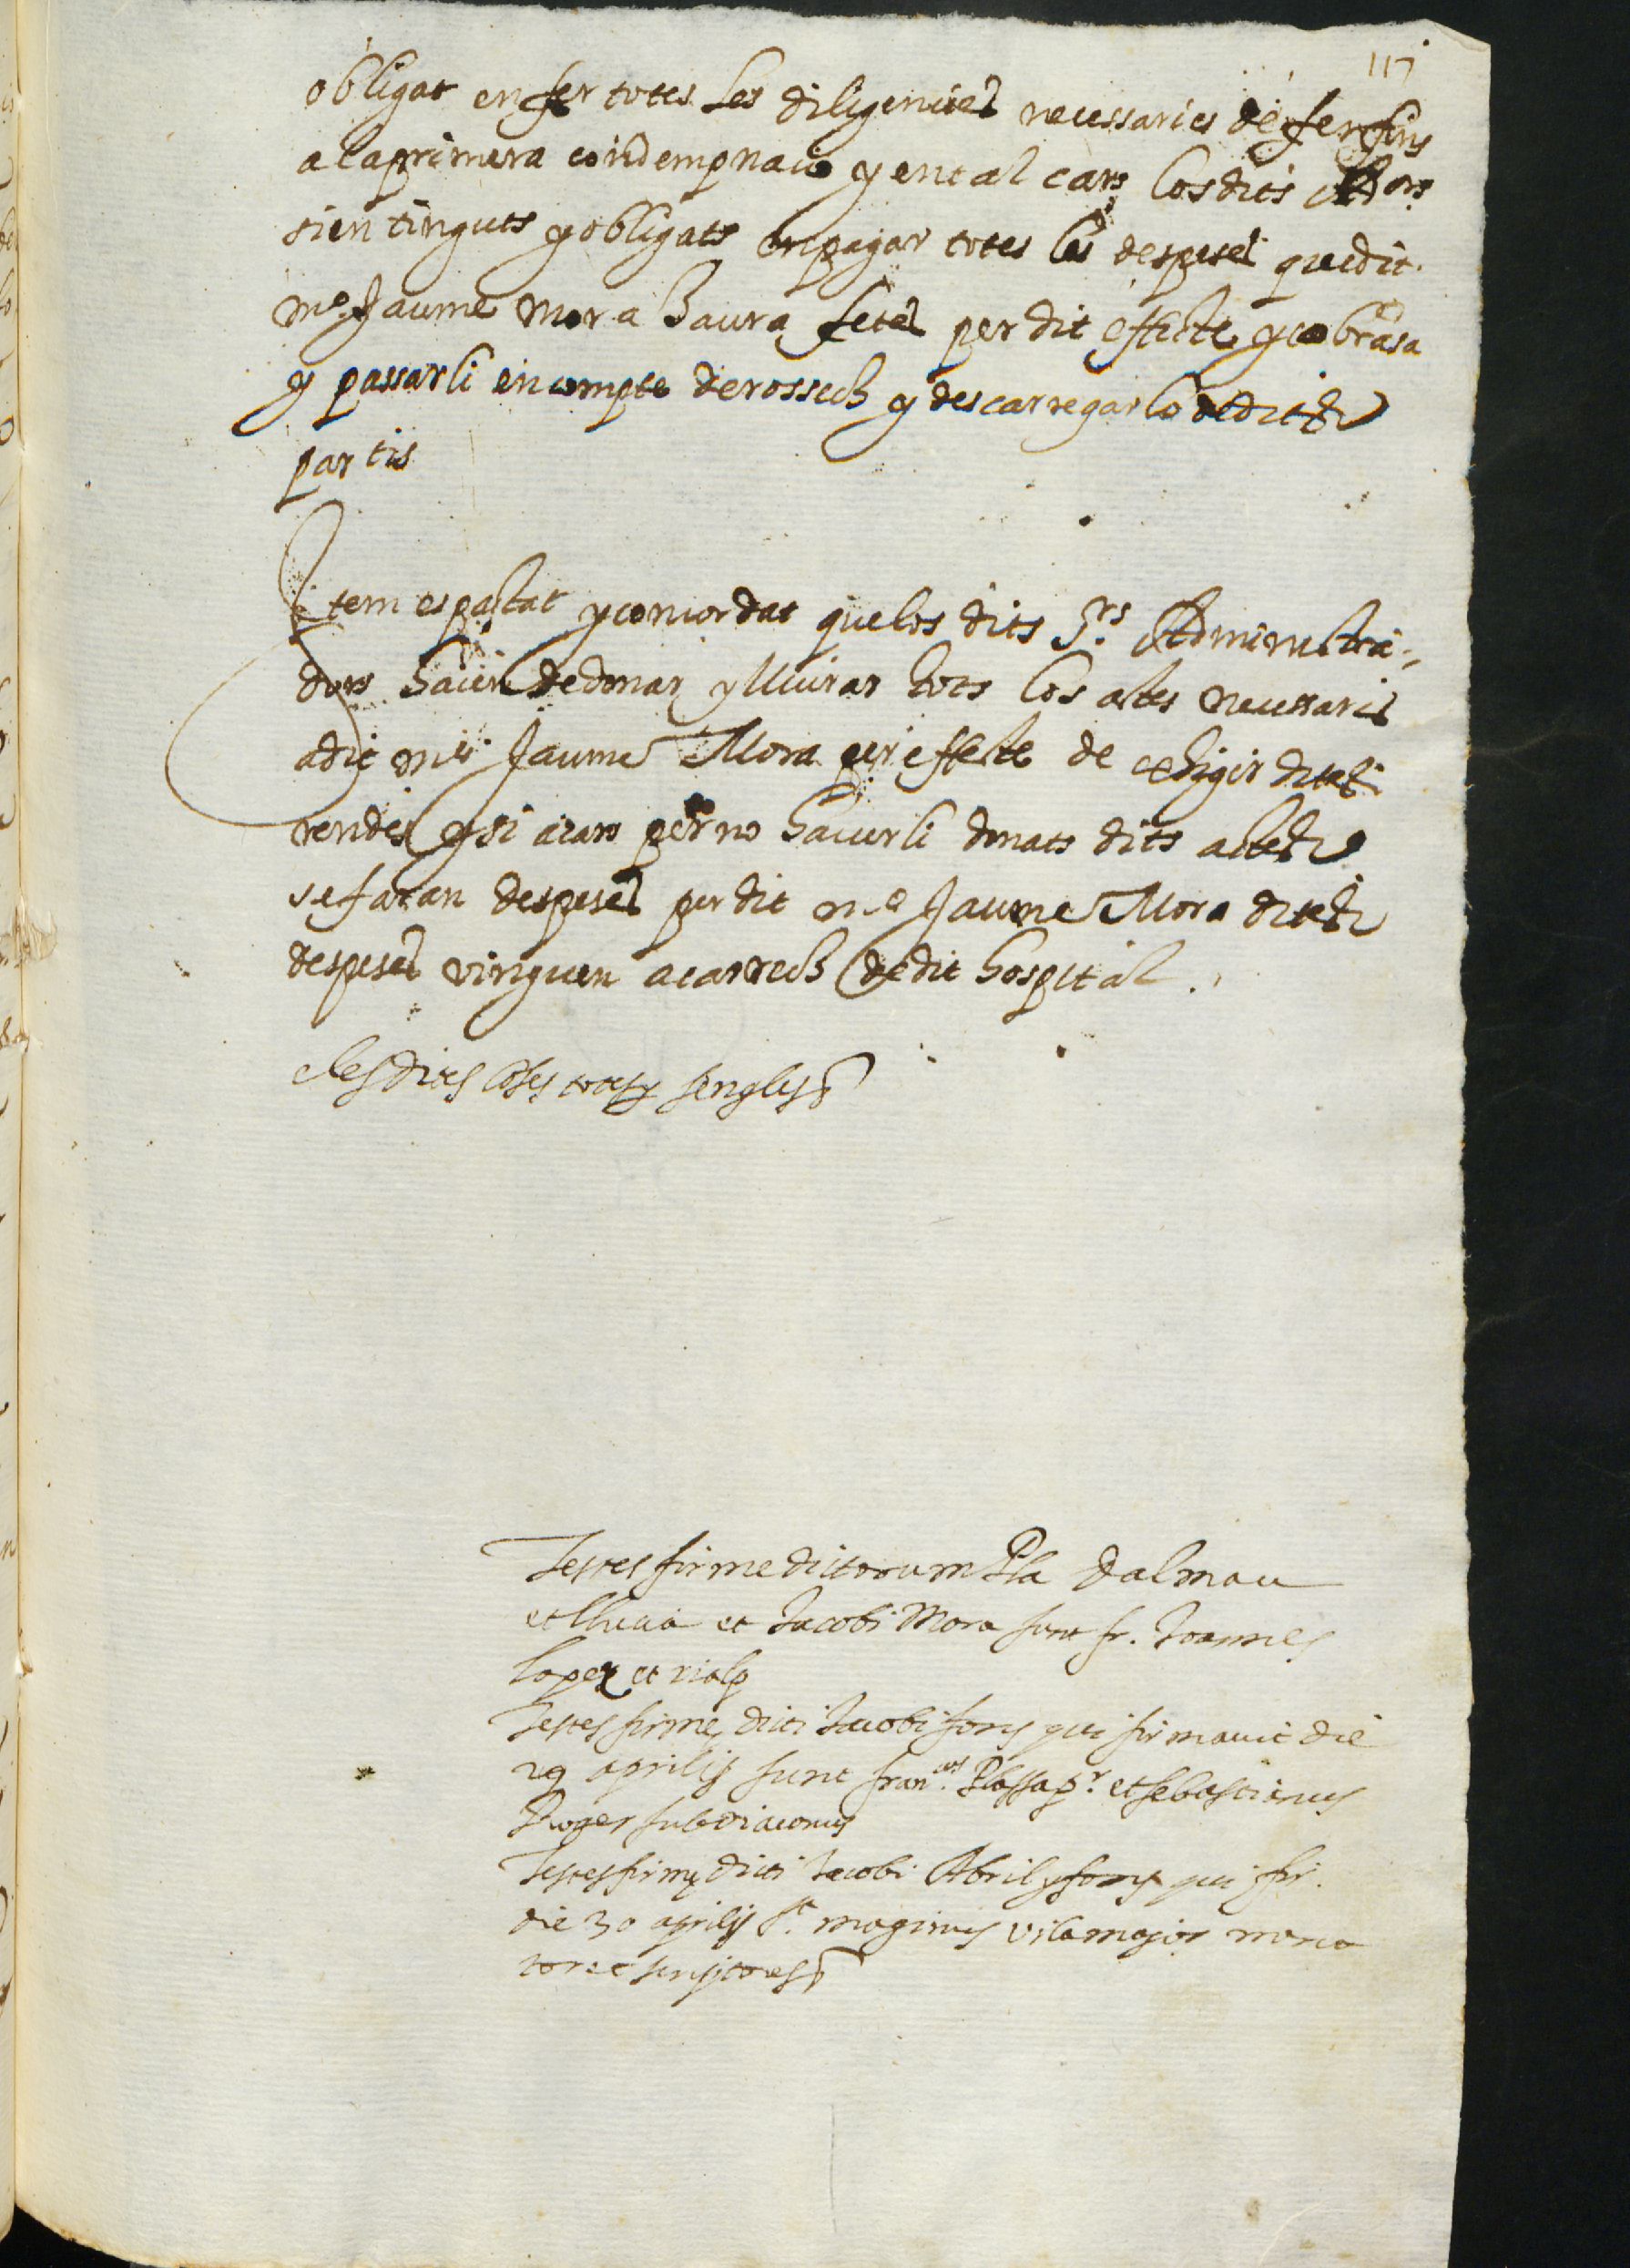 117
obligat en fer totes les diligencies necessaries de fer fins
a la primera condempnacio y en tal cars los dits Adors
sien tinguts y obligats en pagar totes les despeses que dit
mº Jaume Mora haura fetes per dit effecte y cobrasa
y passarli en compte de rossech y descarregarlo de dites
partis
Item es pactat y concordat que los dits Srs Administra-
dors hauen de donar y lliurar tots los actes necessaris
a dit mº Jaume Mora per effecte de exhigir dites
rendes y si a cars per no hauerli donats dits actes
se faran despeses per dit mº Jaume Mora dites
despeses vinguen a carrech de dit hospital.
e les dites coses totes y sengles
Testes firme dictorum Pla Dalmau
et Llucia et Jacobi Mora sunt fr. Joannes
Lopez et rialp
Testes firme dicti Jacobi fons qui firmavit die
29 aprilis sunt francus Plassa pr et sebastianus
Roger subdiaconus
Testes firme dicti Jacobi Abril y fons qui fir.
die 30 aprilis st maginus vilamajor
scriptores